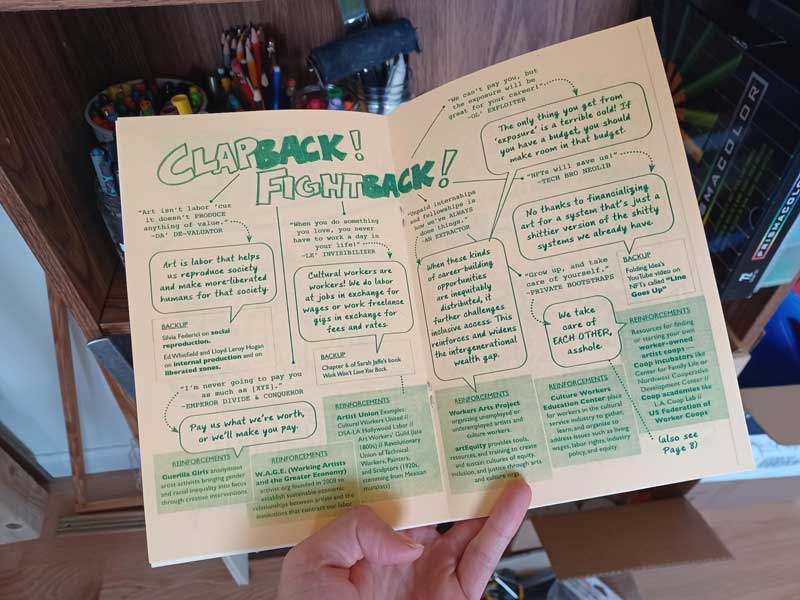 CLAPBACK!
FIGHTBACK!
"Art isn't labor 'cuz
it doesn't PRODUCE
anything of value."
-DA' DE-VALUATOR
Art is labor that helps
us reproduce society
and make more-liberated
humans for that society.
BACKUP
Silvia Federici on social
reproduction.
Ed Whitfield and Lloyd Leroy Hogan
on internal production and on
liberated zones.
"When you do something
you love, you never
have to work a day in
your life!"
-LE' INVISIBILIZER
Cultural workers are
workers! We do labor
at jobs in exchange for
wages or work freelance
gigs in exchange for
fees and rates.
BACKUP
Chapter 6 of Sarah Jaffe's book
Work Won't Love You Back.
"I'm never going to pay you
as much as [XYZ]."
-EMPEROR DIVIDE & CONQUEROR
Pay us what we're worth,
or we'll make you pay.
REINFORCEMENTS
Guerilla Girls anonymous
artist activists bringing gender
and racial inequality into focus
through creative interventions
REINFORCEMENTS
W.A.G.E. (Working Artists
and the Greater Economy)
activist org founded in 2008 to
establish sustainable economic
relationships between artists and the
institutions that contract our labor
REINFORCEMENTS
Artist Union Examples:
Cultural Workers United //
DSA-LA Hollywood Labor //
Art Workers' Guild (late
1800s) // Revolutionary
Union of Technical
Workers, Painters,
and Sculptors (1920s,
stemming from Mexican
muralists)
"We can't pay you, but
the exposure will be
great for your career!"
-OL' EXPLOITER
The only thing you get from
'exposure' is a terrible cold! If
you have a budget, you should
make room in that budget.
"Unpaid internships
and fellowships is
how we've ALWAYS
done things."
-AN EXTRACTOR
When these kinds
of career-building
opportunities
are inequitably
distributed, it
further challenges
inclusive access. This
reinforces and widens
the intergenerational
wealth gap.
REINFORCEMENTS
Workers Arts Project
organizing unemployed or
underemployed artists and
culture workers.
artEquity provides tools,
resources, and training to create
and sustain cultures of equity,
inclusion, and justice through arts
and culture orgs.
"NFTs will save us!"
-TECH BRO NEOLIB
No thanks to financializing
art for a system that's just a
shittier version of the shitty
systems we already have.
BACKUP
Folding Idea's
YouTube video on
NFTs called "Line
Goes Up"
"Grow up, and take
care of yourself."
-PRIVATE BOOTSTRAPS
We take
care of
EACH OTHER,
asshole.
REINFORCEMENTS
Culture Workers
Education Center place
for workers in the cultural
service industry to gather,
learn, and organize to
address issues such as living
wages, labor rights, industry
policy, and equity.
REINFORCEMENTS
Resources for finding
or starting your own
worker-owned
artist coops –
Coop incubators like
Center for Family Life or
Northwest Cooperative
Development Center //
Coop academies like
L.A. Coop Lab //
US Federation of
Worker Coops
(also see
Page 8)
PRISMACOLOR
PRISMACOLOR